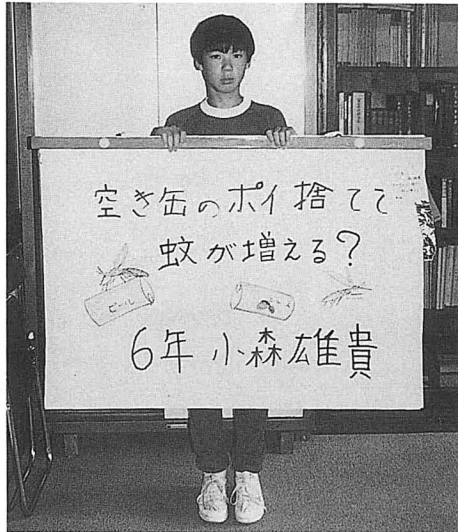 空き缶のポイ捨てで
蚊が増える?
ビール
6年 小森雄貴